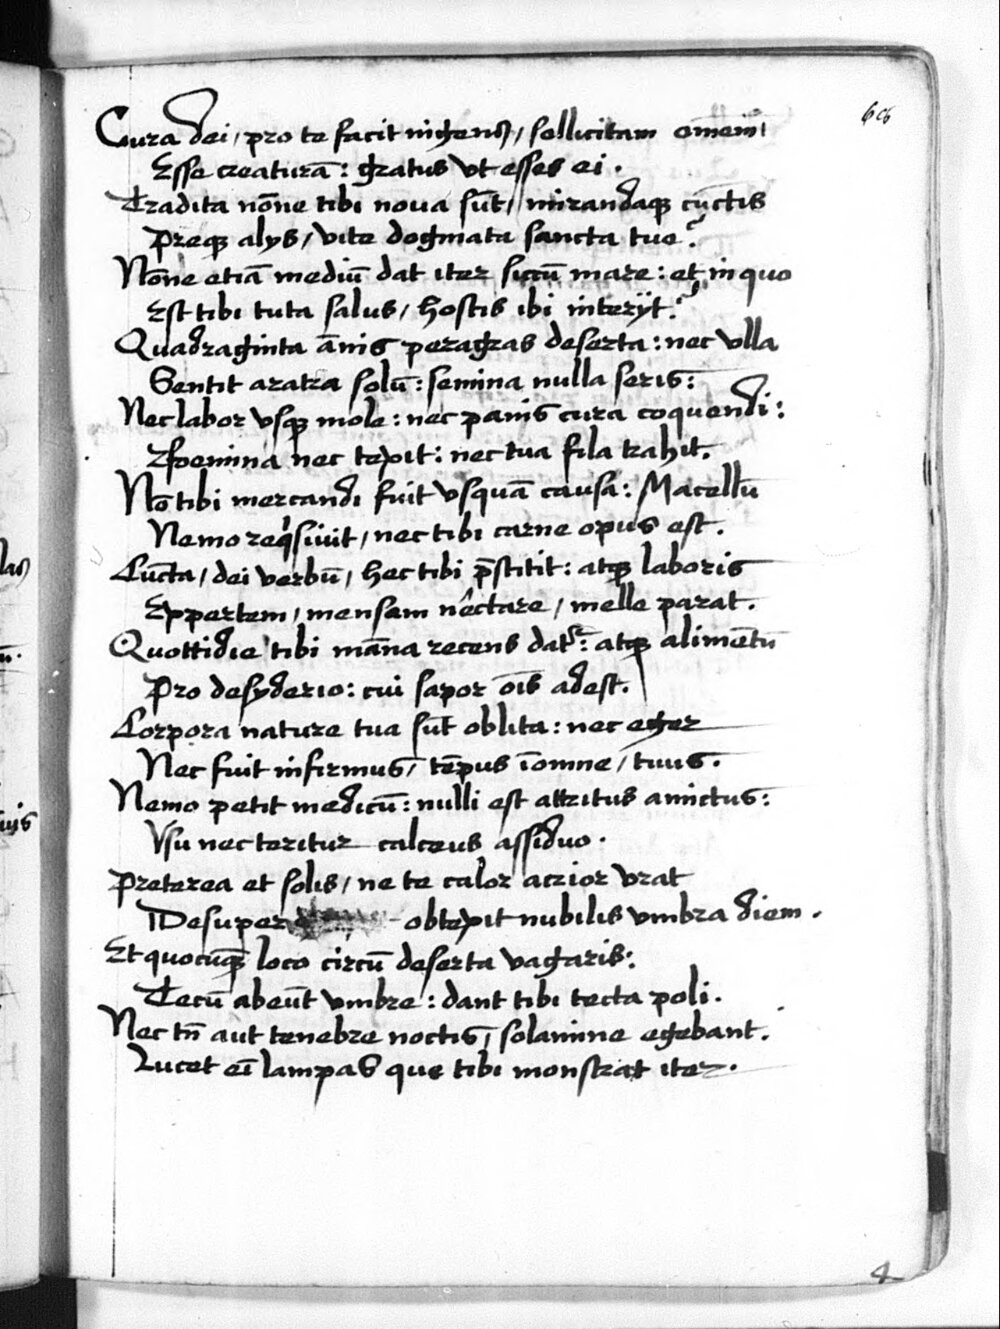 66
Cura dei / pro te facit ingens / sollicitam omnem /
Esse creaturā : gratus vt esses ei .
Tradita nōne tibi noua sūt / mirandaqꝫ cūctis
Preqꝫ alijs / vite dogmata sancta tue ?
Nōne etiā mediū dat iter siccū mare : et in quo
Est tibi tuta salus / hostis ibi interijt ?
Quadraginta ānis peragras deserta : nec vlla
Sentit aratra solū : semina nulla seris :
Nec labor vsqꝫ mole : nec panis cura coquendi :
Foemina nec texit : nec tua fila trahit .
Nō tibi mercandi fuit vsquā causa : Macellū
Nemo reqͥsiuit / nec tibi carne opus est .
Cūcta / dei verbū / hec tibi p̄stitit : atqꝫ laboris
Expertem / mensam nectare / melle parat .
Quottidie tibi māna recens datͬ : atqꝫ alimētū
Pro desyderio : cui sapor oīs adest .
Corpora nature tua sūt oblita : nec eger
Nec fuit infirmus / tēpus ī omne / tuus .
Nemo petit medicū : nulli est attritus amictus :
Vsu nec teritur calceus assiduo .
Preterea et solis / ne te calor acrior vrat
Desuper obtexit nubilis vmbra diem .
Et quocūqꝫ loco circū deserta vagaris :
Tecū abeūt vmbre : dant tibi tecta poli .
Nec tn̄ aut tenebre noctis / solamine egebant .
Lucet eī lampas que tibi monstrat iter .
4